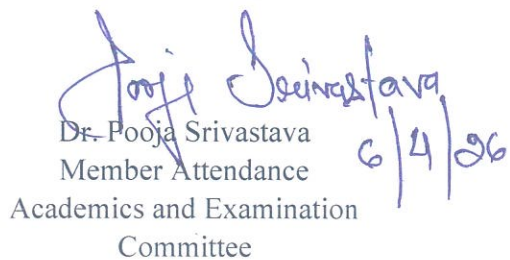 Pooja Srivastava
6/4/26
Dr. Pooja Srivastava
Member Attendance
Academics and Examination
Committee